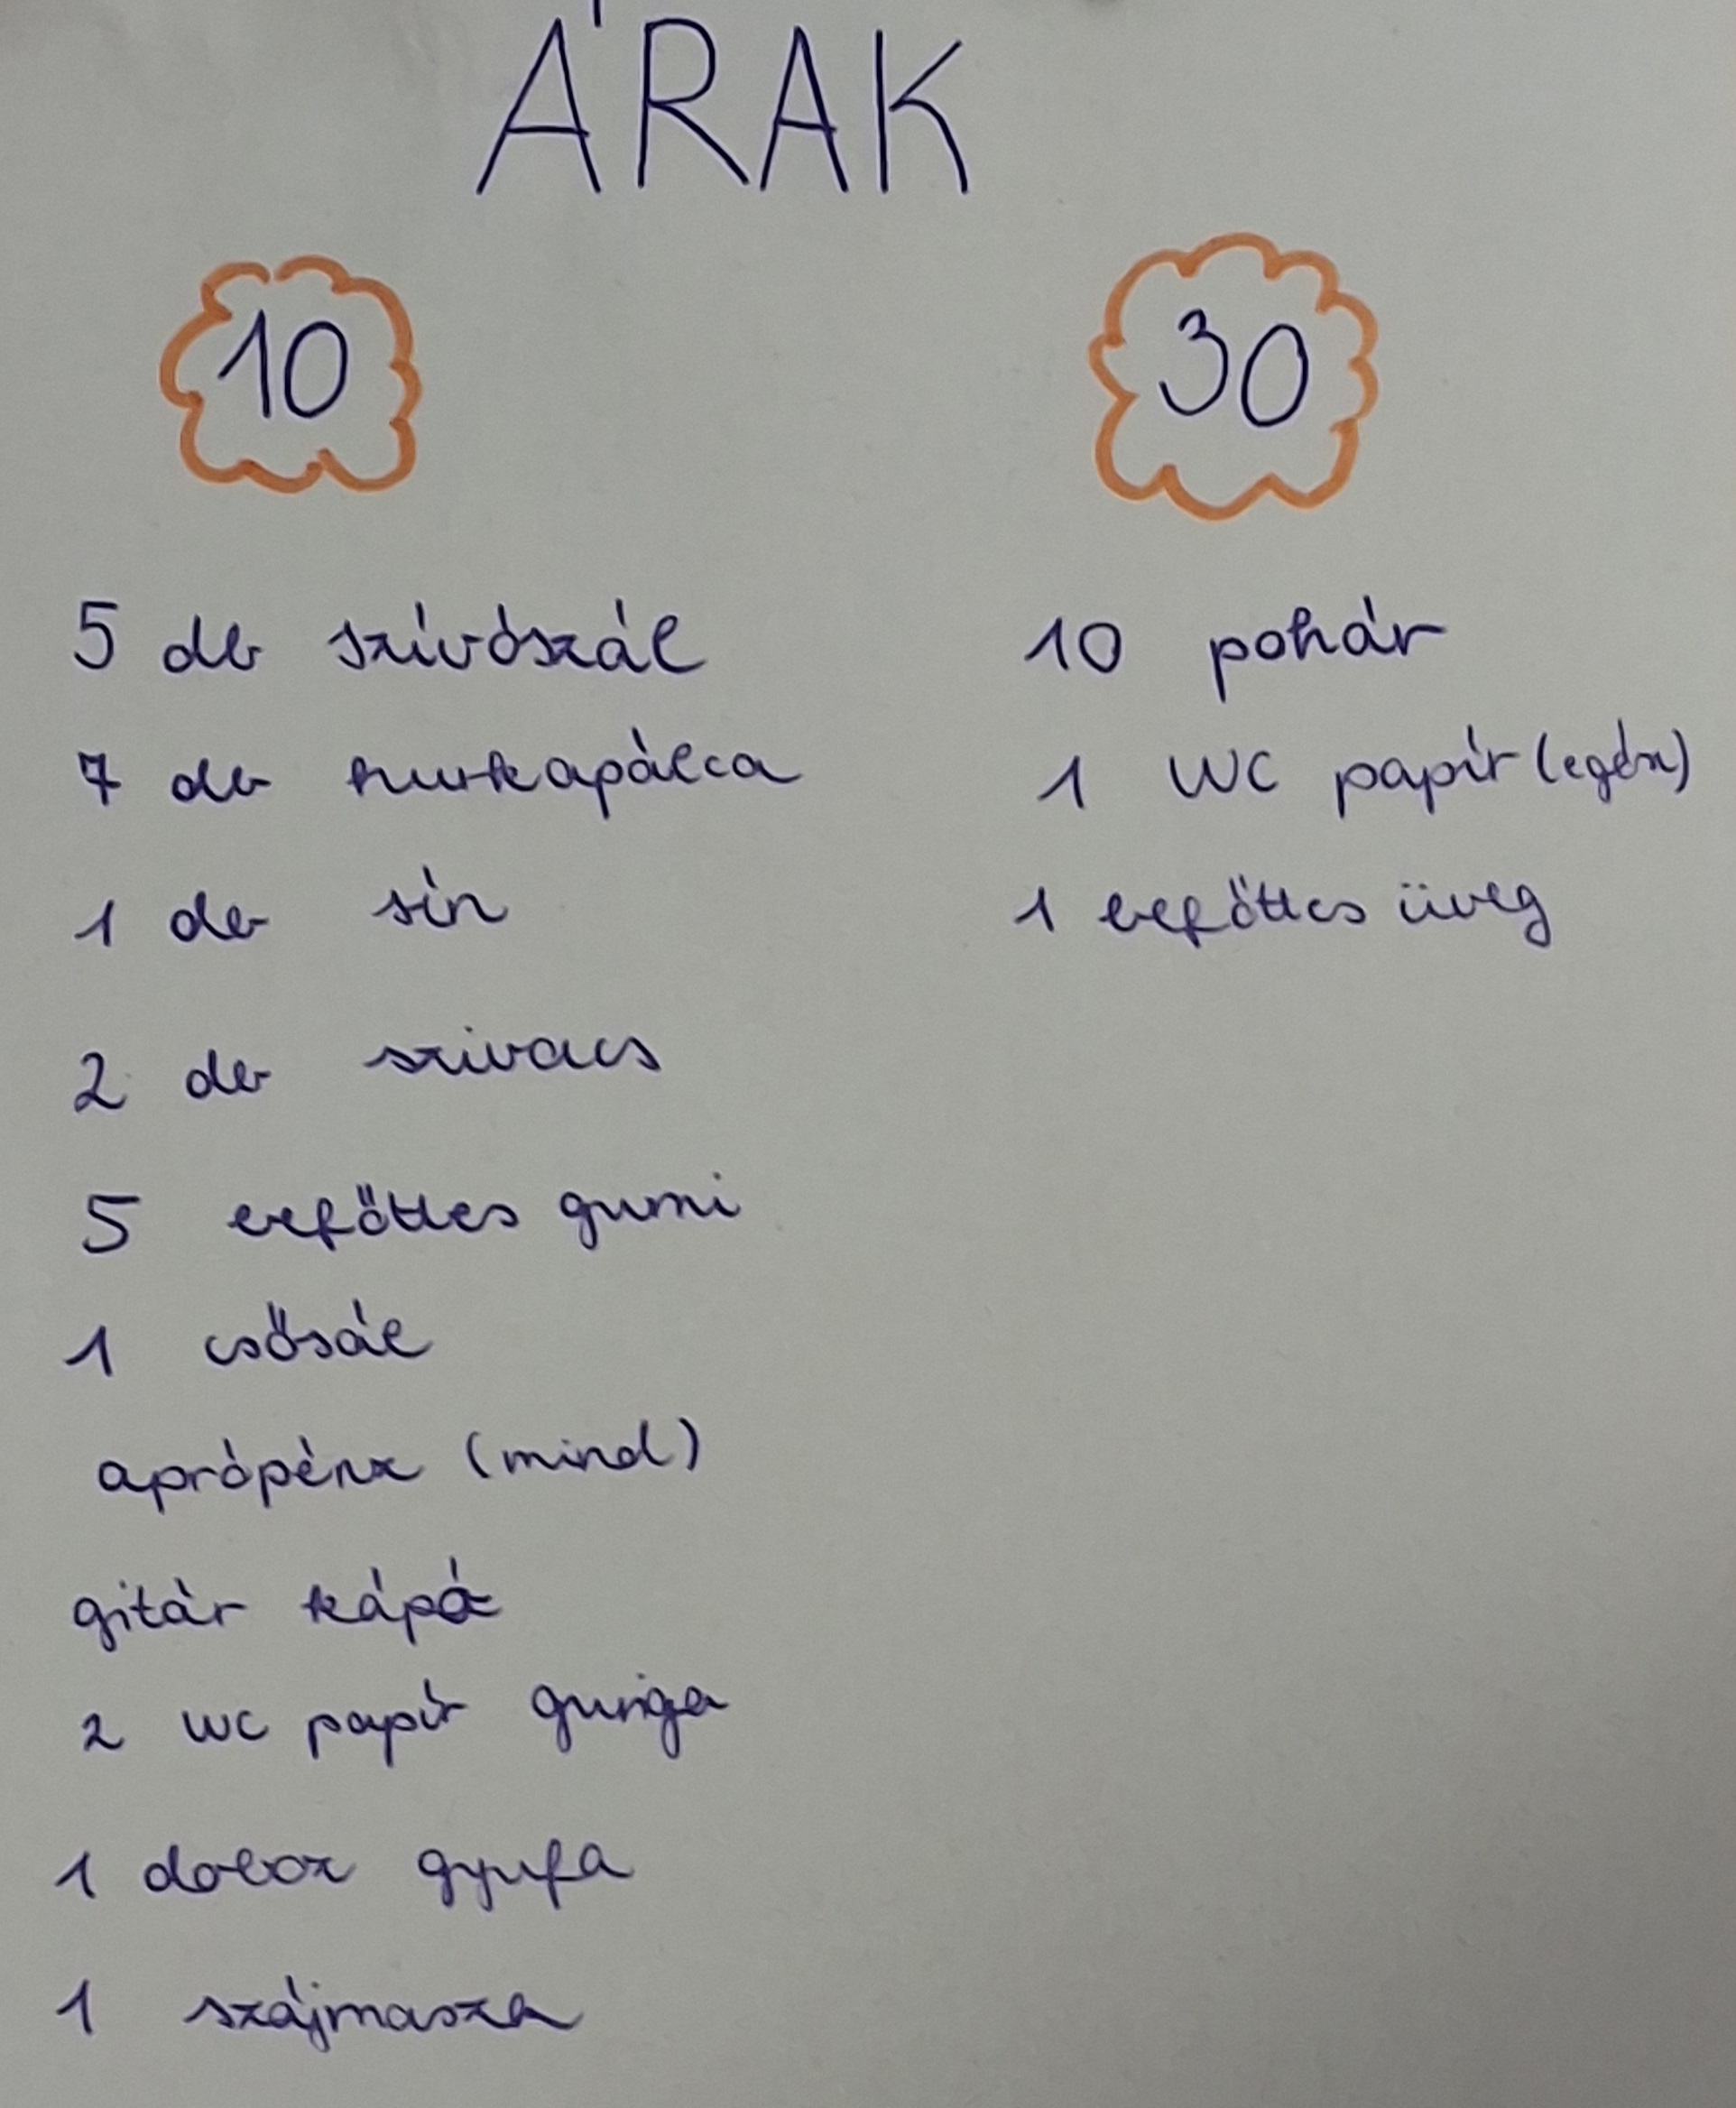 ÁRAK
10
5 db szívószál
7 db hurkapálca
1 db sín
2 db szivacs
5 befőttes gumi
1 csősál
aprópénz (mind)
gitár kápó
2 WC papír guriga
1 doboz gyufa
1 szájmaszk
30
10 pohár
1 WC papír (egész)
1 befőttes üveg